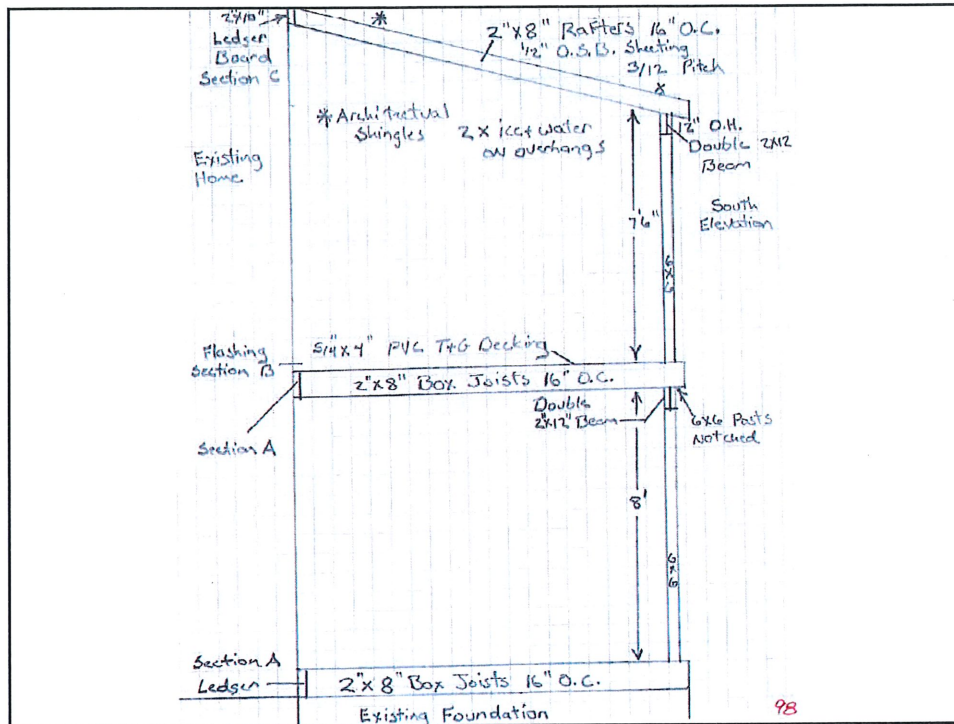 2"x10"
Ledger
Board
Section C
*
2"x8" Rafters 16" O.C.
1/2" O.S.B. Sheeting
3/12 Pitch
x
*Architectual
Shingles
2 x ice+water
on overhangs
12" O.H.
Double 2x12
Beam
Existing
Home
South
Elevation
7'6"
6x6
Flashing
Section B
5/4"x4" PVC T+G Decking
2"x8" Box Joists 16" O.C.
Double
2"x12" Beam
6x6 Posts
Notched
Section A
8'
6x6
Section A
Ledger
2"x8" Box Joists 16" O.C.
Existing Foundation
98